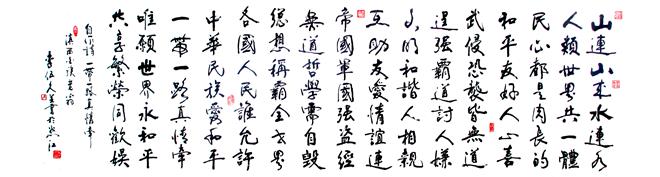 山連山來水連水
人類世界共一體
民心都是肉長的
和平友好人心喜
武侵恐襲皆無道
逞强霸道討人嫌
人們和諧人相親
互助友愛情誼連
帝國軍國强盜經
無道哲學需自毀
總想稱霸全世界
各國人民誰允許
中華民族愛和平
一帶一路真情牽
唯願世界永和平
共享繁榮同歡娱
自作詩一帶一路真情牽